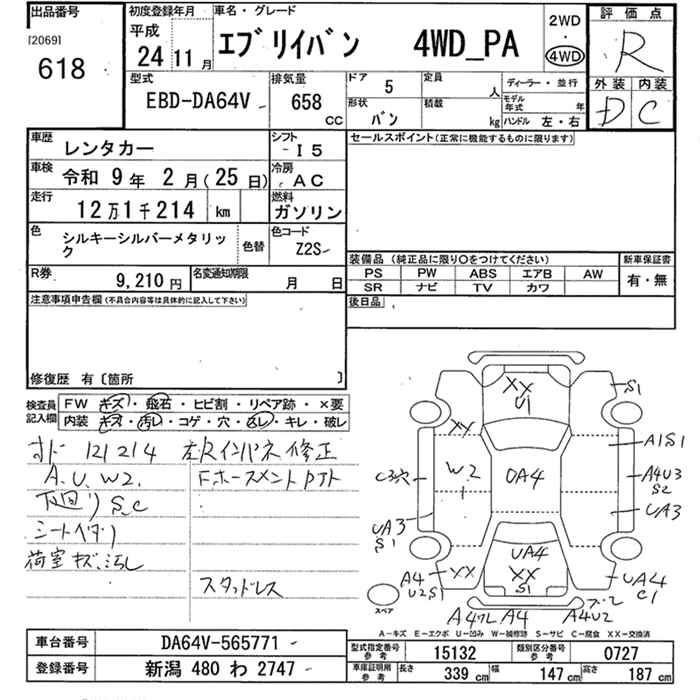 出品番号
[2069]
618
初度登録年月
平成
24 11 月
車名・グレード
エブリイバン 4WD_PA
2WD
・
4WD
評価点
R
外装 内装
D C
型式
EBD-DA64V
排気量
658
CC
ドア
5
形状
バン
定員
人
積載
kg
ディーラー・並行
モデル年式 年
ハンドル 左・右
車歴 レンタカー
シフト I5
車検 令和 9 年 2 月(25 日)
冷房 AC
走行 12 万 1 千 214 km
燃料 ガソリン
色 シルキーシルバーメタリック
色替
色コード Z2S
R券 9,210 円
名変通知期限 月 日
注意事項申告欄(不具合内容等は具体的に記入して下さい)
修復歴 有〔箇所 〕
セールスポイント(正常に機能するものに限ります)
装備品(純正品に限り○をつけてください)
新車保証書
PS PW ABS エアB AW
SR ナビ TV カワ
有・無
後日品
検査員記入欄
FW キズ・飛石・ヒビ割・リペア跡・×要
内装 キズ・汚レ・コゲ・穴・凹レ・キレ・破レ
121214 左右インパネ修正
A.U.W2.
下回り S.C
シートヘタリ
荷室キズ、汚レ
スタッドレス
XX
U1
S1
XX
A1S1
W2
1
OA4
C3穴
A4U3
S2
UA3
S1
UA3
UA4
XX
S1
XX
A4
U2S1
UA4
C1
スペア
A4 A4U2
A-キズ E-エクボ U-凹み W-補修跡 S-サビ C-腐食 XX-交換済
車台番号 DA64V-565771
登録番号 新潟 480 わ 2747
型式指定番号 参考 15132
類別区分番号 参考 0727
車庫証明用 参考 長さ 339 cm 幅 147 cm 高さ 187 cm